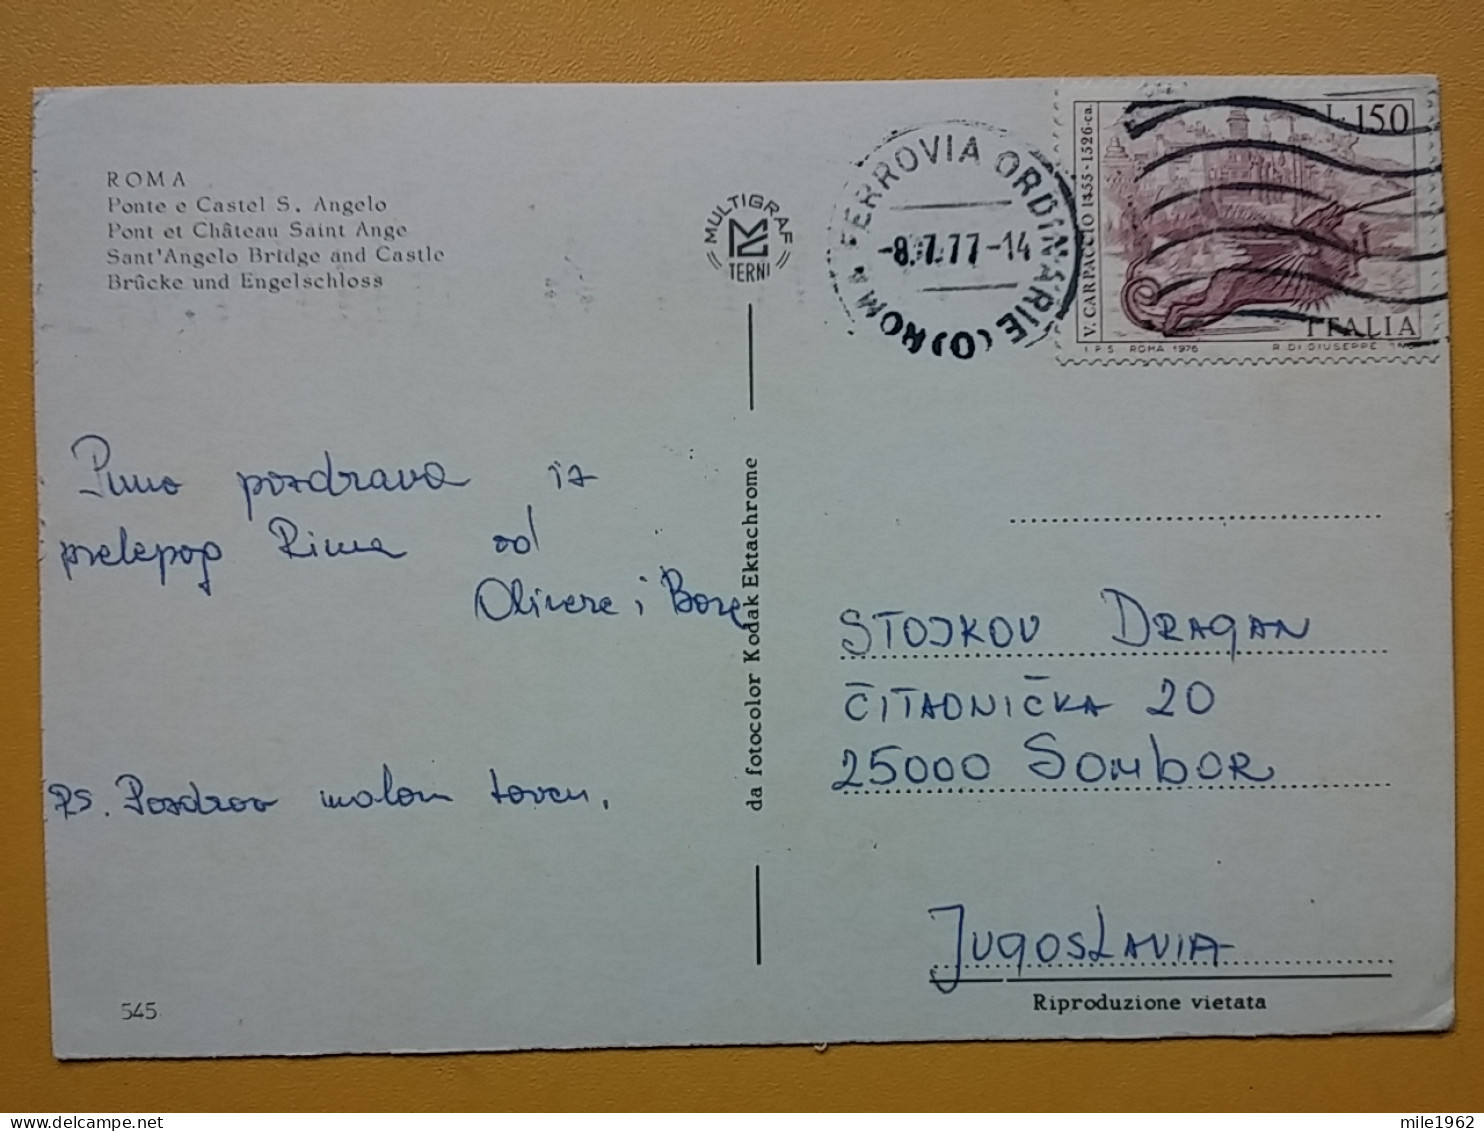 ROMA
Ponte e Castel S. Angelo
Pont et Château Saint Ange
Sant'Angelo Bridge and Castle
Brücke und Engelschloss
MULTIGRAF
TERNI
ROMA FERROVIA ORDINARIE (O)
-8.7.77-14
L. 150
V. CARPACCIO 1455-1526 ca.
ITALIA
I.P.S. ROMA 1976 R. DI GIUSEPPE INC.
Puno pozdrava iz
prelepog Rima od
Olivere i Bore
PS. Pozdrav malom
da fotocolor Kodak Ektachrome
STOJKOV DRAGAN
ČITAONIČKA 20
25000 SOMBOR
JUGOSLAVIA
Riproduzione vietata
545
mile1962